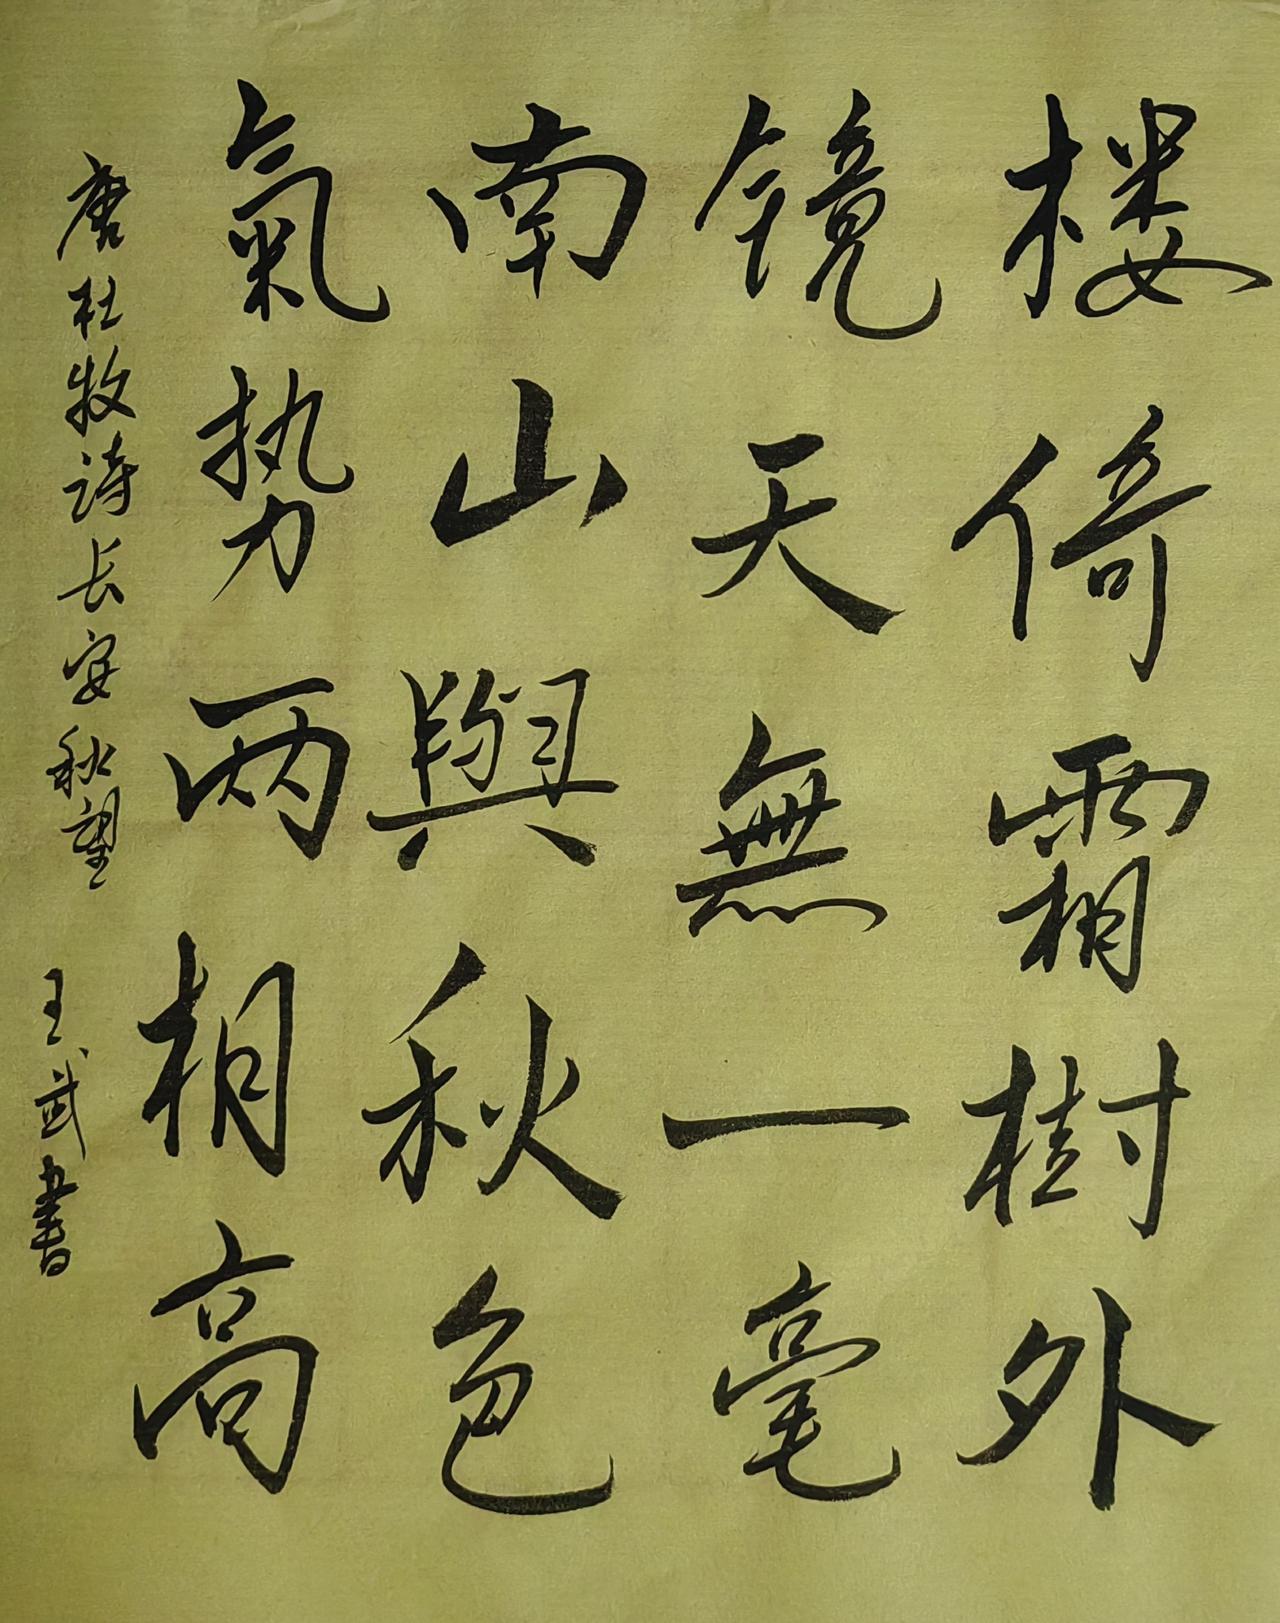 楼倚霜樹外
镜天無一毫
南山與秋色
氣势两相高
唐杜牧诗长安秋望 王武書